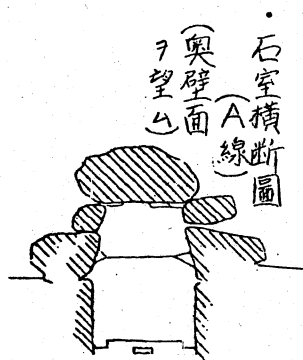 石室横断圖
（A線）
（奥壁面
ヲ望ム）